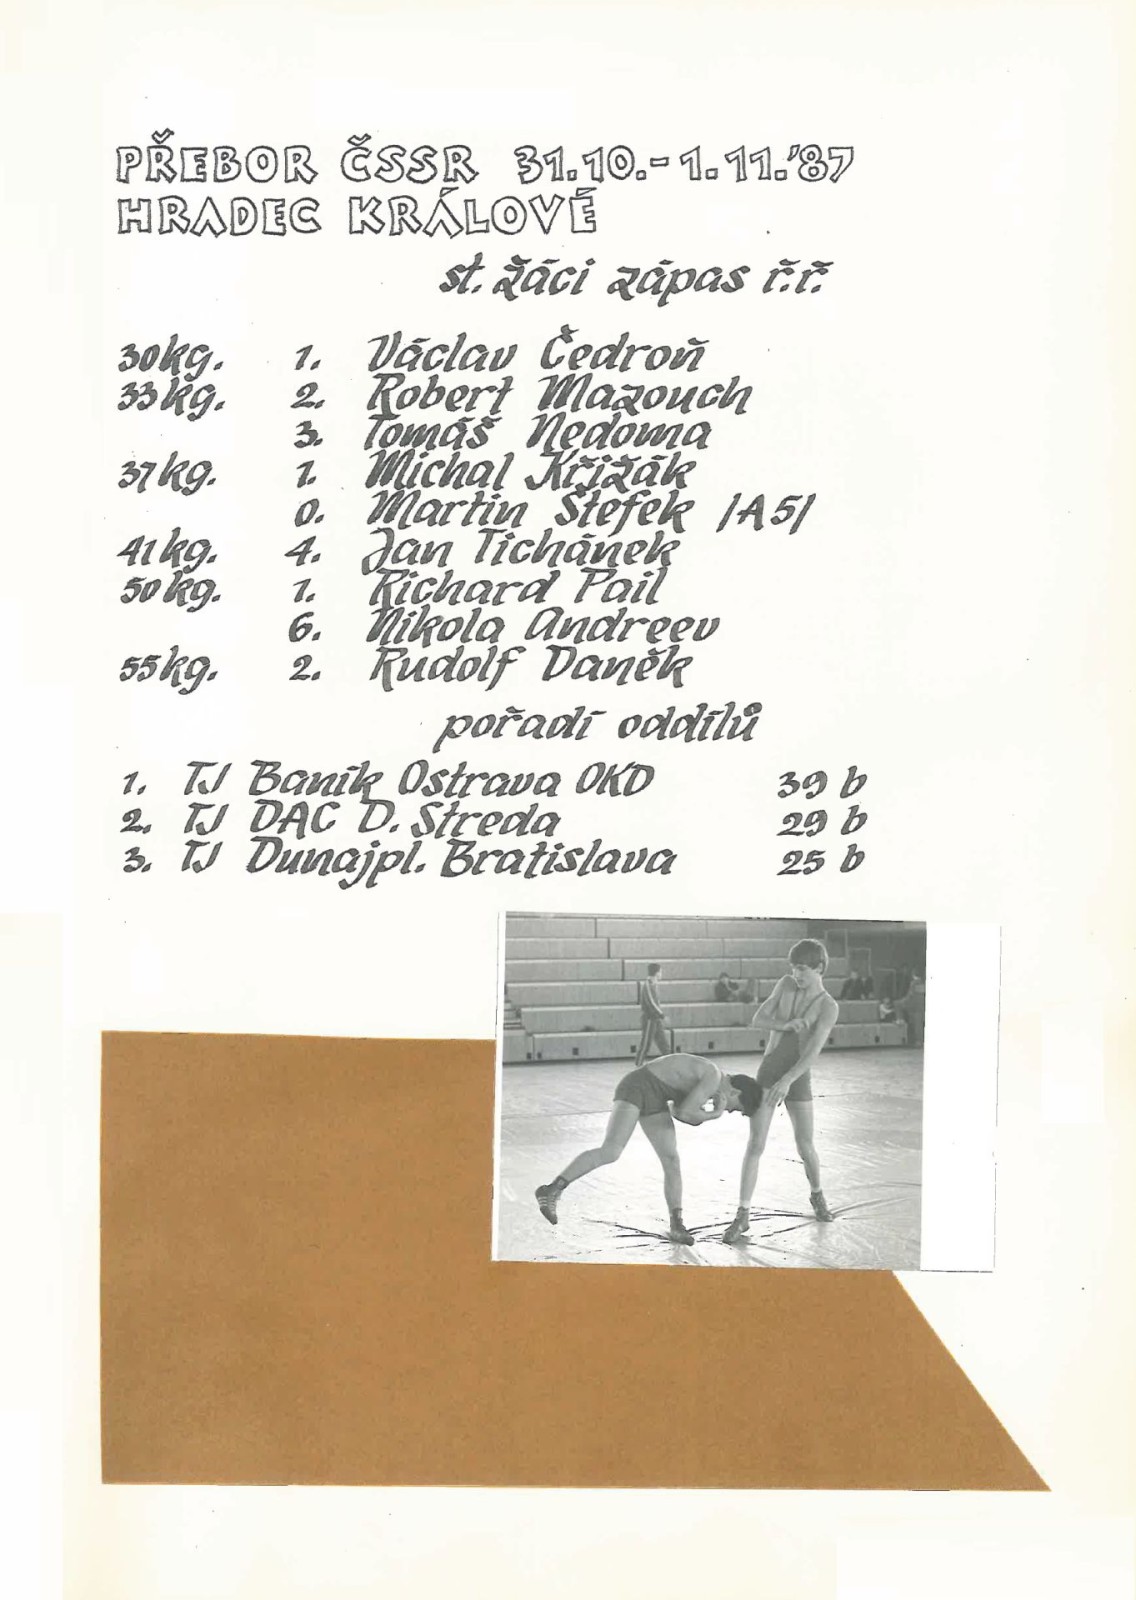 PŘEBOR ČSSR 31.10.-1.11.'87
HRADEC KRÁLOVÉ
st. žáci zápas ř.ř.
30kg. 1. Václav Čedroň
33kg. 2. Robert Mazouch
3. Tomáš Nedoma
37kg. 1. Michal Křižák
0. Martin Štefek /A5/
41kg. 4. Jan Tichánek
50kg. 1. Richard Pail
6. Nikola Andreev
55kg. 2. Rudolf Daněk
pořadí oddílů
1. TJ Baník Ostrava OKD 39 b
2. TJ DAC D. Streda 29 b
3. TJ Dunajpl. Bratislava 25 b